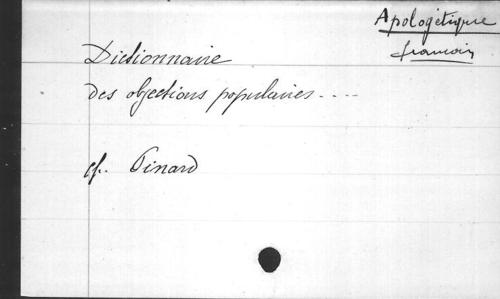 Apologétique
français
Dictionnaire
des objections populaires ....
cf. Pinard